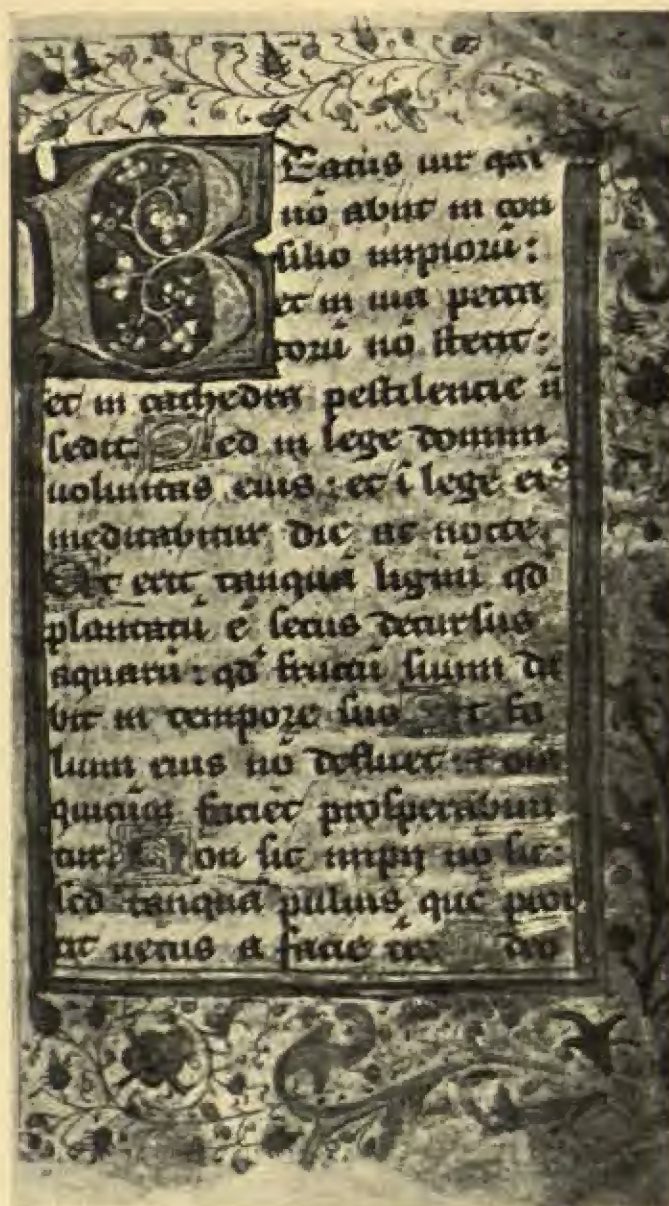 Beatus uir qui
nō abiit in con
silio impiorū:
et in uia pecca
torū nō stetit:
et in cathedra pestilencie nō
sedit. Sed in lege domini
uoluntas eius: et ī lege eiꝰ
meditabitur die ac nocte.
Et erit tanquā lignū qd̄
plantatū ē secus decursus
aquarū: qd̄ fructū suum da
bit in tempore suo Et fo
lium eius nō defluet: et oīa
quecūqꝫ faciet prosperabun
tur. Non sic impij nō sic:
sed tanquā puluis quē proi
cit uētus a facie